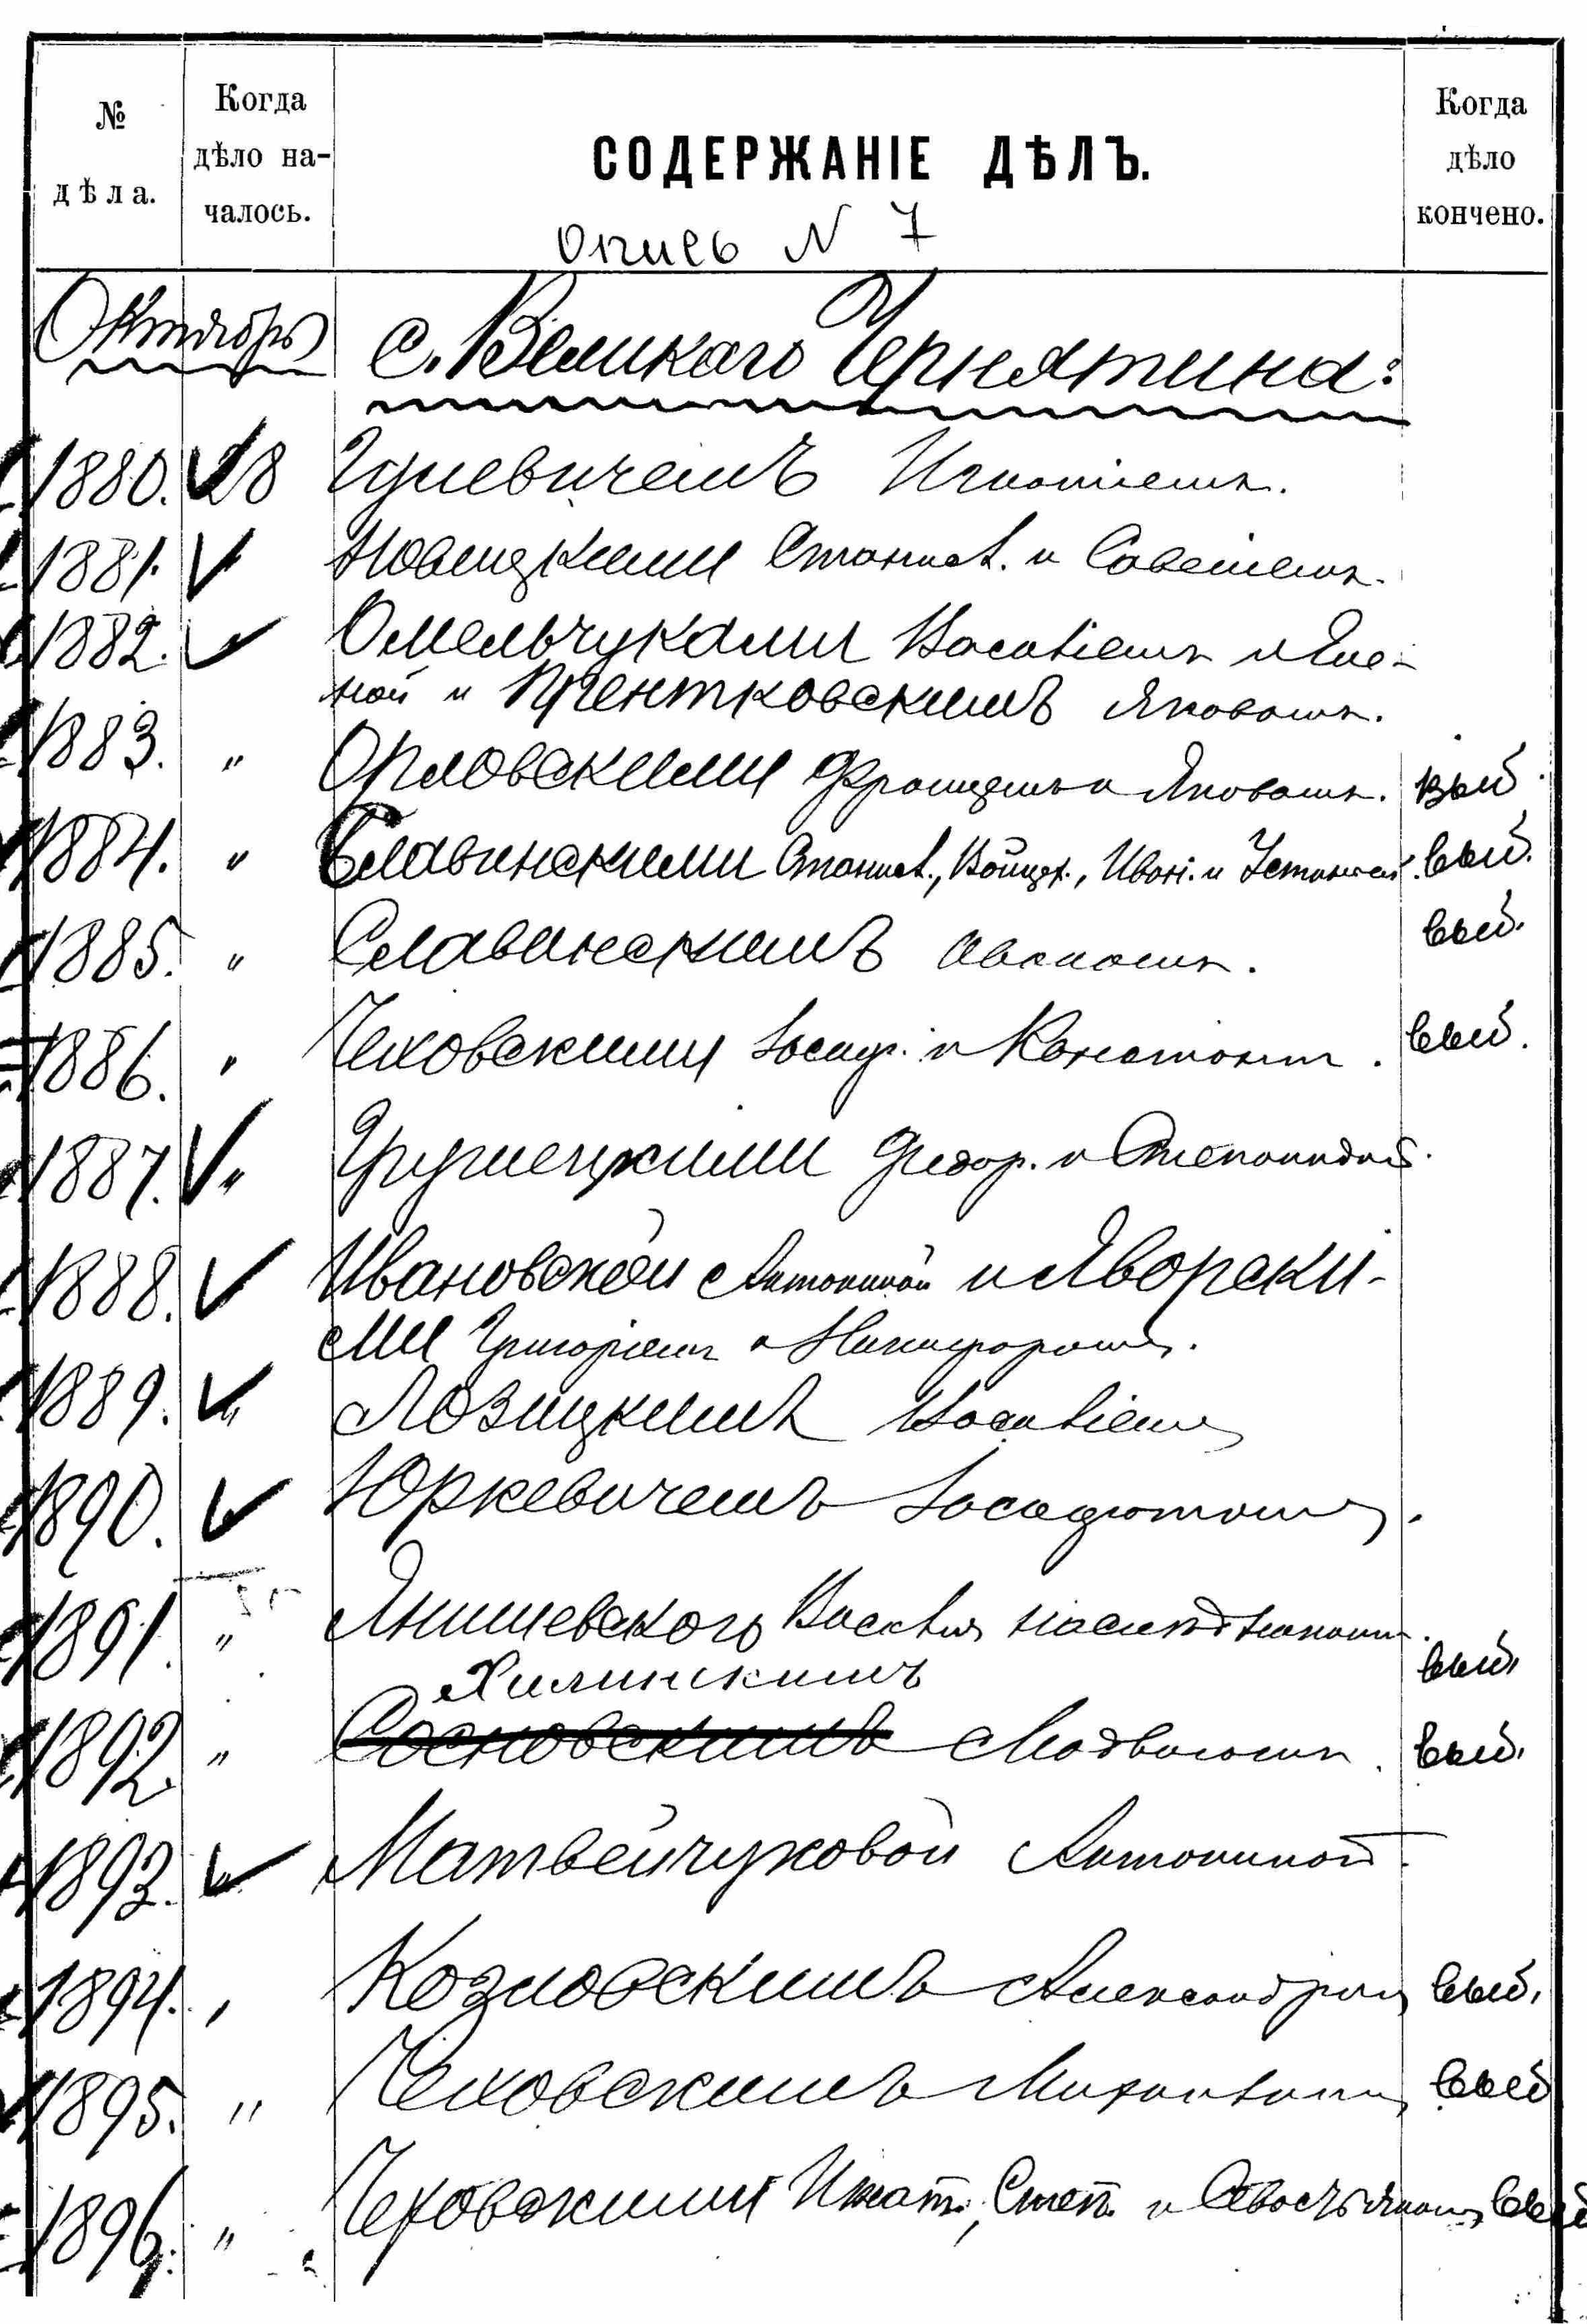 № дѣла.
Когда дѣло началось.
СОДЕРЖАНІЕ ДѢЛЪ.
Когда дѣло кончено.
Опись N 7
Октябрь
с. Великаго Чернятина:
1880. 28 Гулевичемъ Игнатіемъ.
1881. Новицкими Станисл. и Савеліемъ.
1882. Омельчуками Василіемъ и Еле-
ной и Прентковскимъ Яковомъ.
1883. " Орловскими Францемъ и Яковомъ. выб.
1884. " Славинскими Станисл., Войцех., Иван. и Устиніей. выб.
1885. " Славинскимъ выб.
1886. " Чеховскими Іосиф. и Константин. выб.
1887. " Грушецкими Федор. и Степанидой.
1888. Ивановской Антониной и Яворски-
ми Григоріемъ и Никифоромъ.
1889. " Лозицкимъ Василіемъ
1890. Юркевичемъ Іосафатомъ.
1891. " Янишевского Василія наслѣдниками. выб.
Хилинскимъ
1892. " Сосновскимъ Людвигомъ. выб.
1893. Матвейчуковой Антониной.
1894. " Козловскимъ Александромъ выб.
1895. " Чеховскимъ Михаиломъ выб
1896. " Чеховскими Игнат., Степ. и Севастьяномъ выб